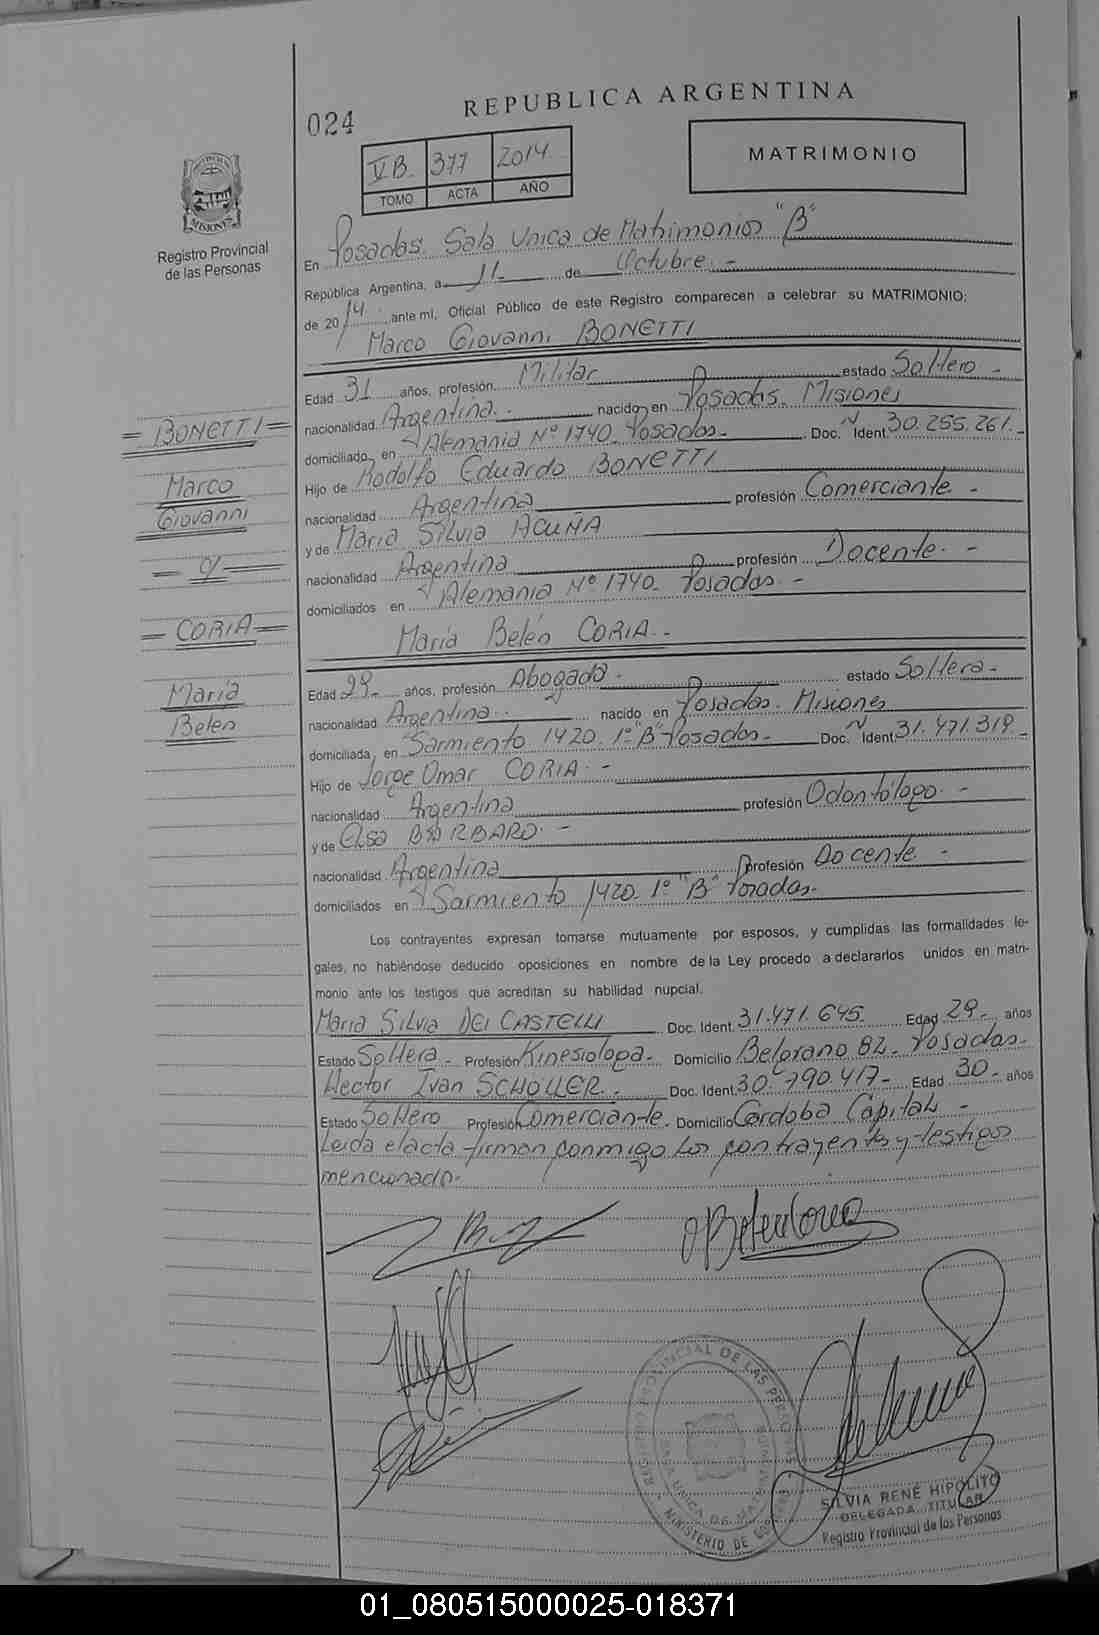 REPUBLICA ARGENTINA
024
VB. 377 2014
TOMO ACTA AÑO
MATRIMONIO
MISIONES
Registro Provincial
de las Personas
En Posadas. Sala Unica de Matrimonios "B"
República Argentina, a 11 de Octubre. -
de 2014 ante mí, Oficial Público de este Registro comparecen a celebrar su MATRIMONIO:
Marco Giovanni BONETTI
Edad 31 años, profesión Militar estado Soltero -
nacionalidad Argentina. - nacido en Posadas. Misiones
domiciliado en Alemania Nº 1740. Posadas. - Doc. Ident. 30.255.261. -
Hijo de Rodolfo Eduardo BONETTI
nacionalidad Argentina profesión Comerciante. -
y de Maria Silvia ACUÑA
nacionalidad Argentina profesión Docente. -
domiciliados en Alemania Nº 1740. Posadas -
Maria Belén CORIA. -
= BONETTI =
Marco
Giovanni
= c/ =
= CORIA =
Maria
Belén
Edad 29 años, profesión Abogada. estado Soltera -
nacionalidad Argentina. nacido en Posadas. Misiones
domiciliada en Sarmiento 1420. 1º "B" Posadas. - Doc. Nº Ident 31.471.319. -
Hijo de Jorge Omar CORIA. -
nacionalidad Argentina profesión Odontólogo. -
y de Elsa BARBARO. -
nacionalidad Argentina profesión Docente. -
domiciliados en Sarmiento 1420. 1º "B" Posadas.
Los contrayentes expresan tomarse mutuamente por esposos, y cumplidas las formalidades le-
gales, no habiéndose deducido oposiciones en nombre de la Ley procedo a declararlos unidos en matri-
monio ante los testigos que acreditan su habilidad nupcial.
Maria Silvia DEI CASTELLI Doc. Ident. 31.471.645. Edad 29 años
Estado Soltera - Profesión Kinesiologa. Domicilio Belgrano 82 - Posadas.
Hector Ivan SCHOLLER. Doc. Ident. 30.790.417 - Edad 30 - años
Estado Soltero Profesión Comerciante. Domicilio Córdoba Capital -
Leida el acta firman conmigo los contrayentes y testigos
mencionado.
REGISTRO PROVINCIAL DE LAS PERSONAS
SALA UNICA DE MATRIMONIOS
MINISTERIO DE GOBIERNO
SILVIA RENÉ HIPOLITO
DELEGADA TITULAR
Registro Provincial de las Personas
01_080515000025-018371